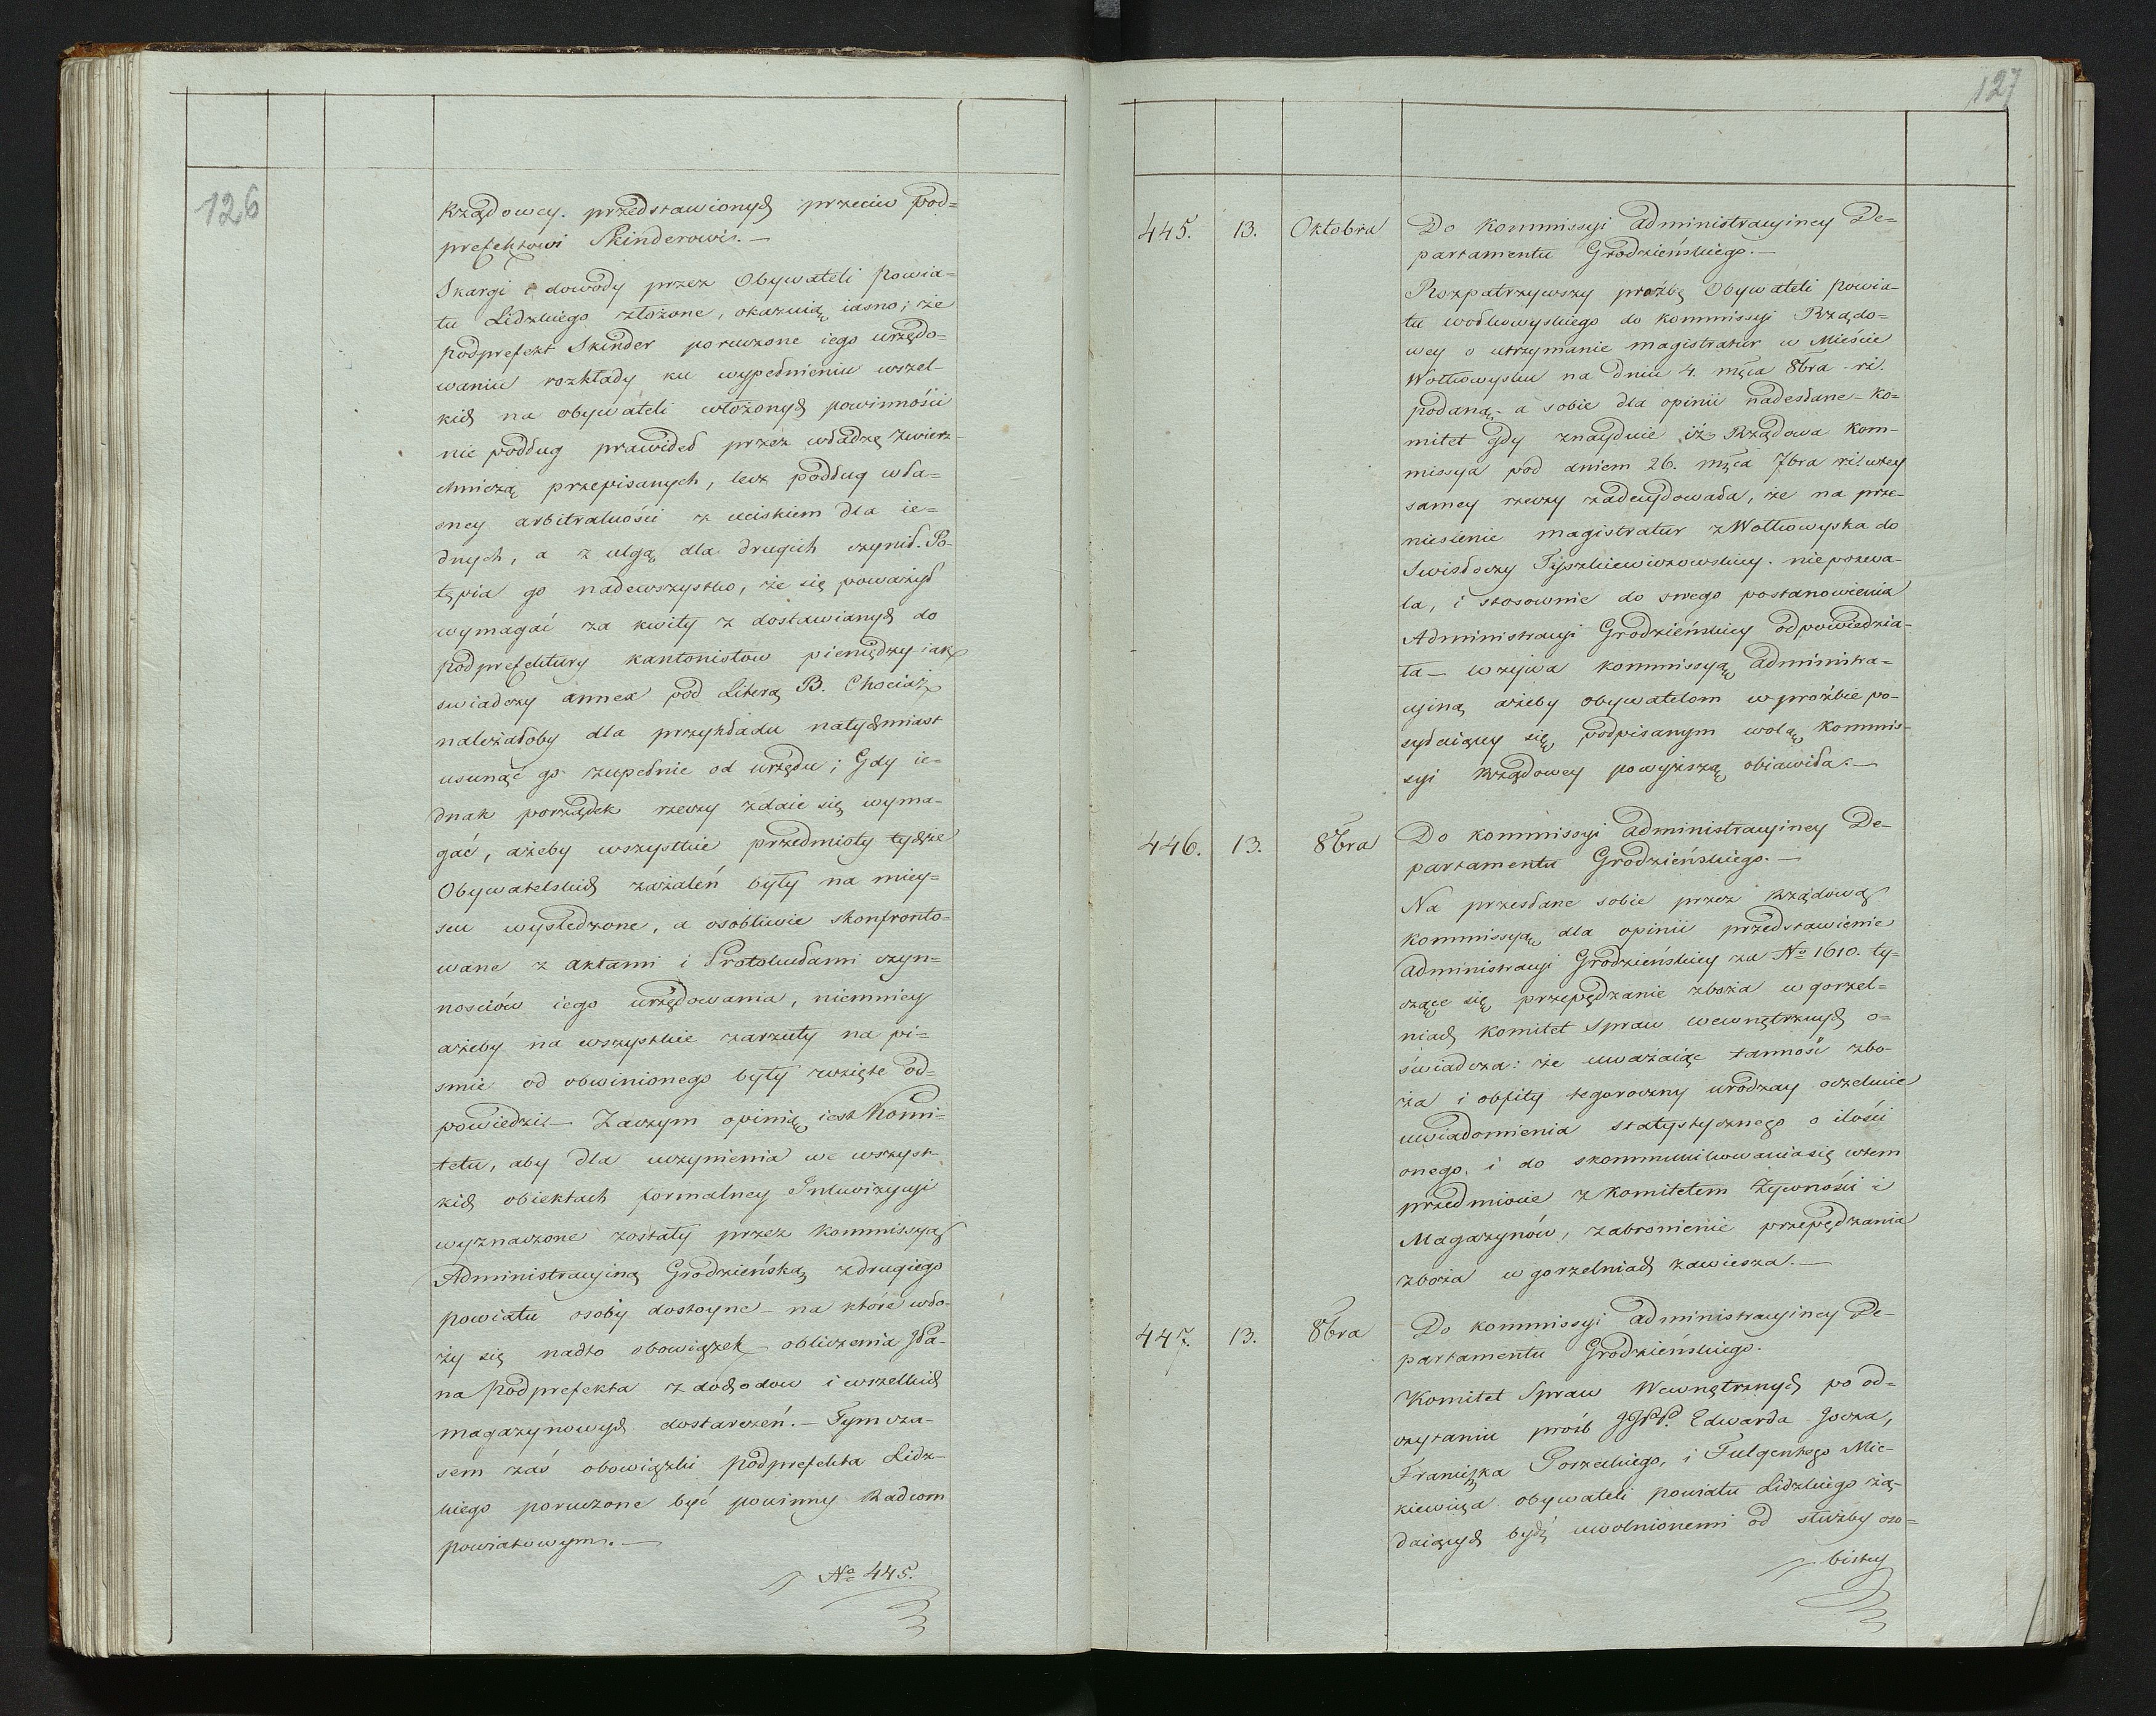 126
Rządowey. przedstawionych przeciw Pod=
prefektowi Skinderowi. —
Skargi i dowody przez Obywateli Powia=
tu Lidzkiego złożone, okazuią iasno; że
Podprefekt Skinder poruczone iego urzędo=
waniu rozkłady ku wypełnieniu wszel-
kich na obywateli włożonych powinności
nie podług prawideł przez władzę zwierz-
chniczą przepisanych, lecz podług wła=
sney arbitralności z uciskiem dla ie=
dnych, a z ulgą dla drugich czynił. Po-
tępia go nadewszystko, że się poważył
wymagać za kwity z dostawianych do
Podprefektury kantonistow pieniędzy iak
swiadczy annex pod Literą B. Chociaż
należałoby dla przykładu natychmiast
usunąć go zupełnie od urzędu; Gdy ie=
dnak porządek rzeczy zdaie się wyma-
gać, ażeby wszystkie przedmioty tychże
Obywatelskich zażaleń były na miey=
scu wysledzone, a osobliwie skonfronto=
wane z aktami i Protokułami czyn=
nosciów iego urzędowania, niemniey
ażeby na wszystkie zarzuty na pi=
smie od obwinionego były wzięte od=
powiedzi — Zaczym opinią iest Komi=
tetu, aby dla uczynienia we wszyst-
kich obiektach formalney Inkwizycyi
wyznaczone zostały przez Kommissyą
Administracyiną Grodzieńską z drugiego
powiatu osoby dostoyne — na ktore wło-
ży się nadto obowiązek obliczenia JPa-
na Podprefekta z dochodow i wszelkich
magazynowych dostarczeń. — Tymcza-
sem zaś obowiązki Podprefekta Lidz-
kiego poruczone być powinny Radcom
powiatowym. —
No 445.
127
445. 13. Oktobra Do Kommissyi Administracyiney De=
partamentu Grodzieńskiego. —
Rozpatrzywszy proźbę Obywateli Powia-
tu wołkowyskiego do Kommissyi Rządo=
wey o utrzymanie magistratur w Mieście
Wołkowysku na dniu 4. mca 8bra ri.
podaną — a sobie dla opinii nadesłane — Ko=
mitet gdy znayduie iż Rządowa Kom-
missya pod dniem 26. mca 7bra ri. w tey
samey rzeczy zadecydowała, że na prze-
niesienie magistratur z Wołkowyska do
Swisłoczy Tyszkiewiczowskiey. nie pozwa-
la, i stosownie do swego postanowienia
Administracyi Grodzieńskiey odpowiedzia-
ła — wzywa Kommissyą Administra=
cyiną ażeby obywatelom w proźbie po-
syłaiący się podpisanym wolą Kommis-
syi Rządowey powyższą obiawiła. —
446. 13. 8bra Do Kommissyi Administracyiney De-
partamentu Grodzieńskiego. —
Na przesłane sobie przez Rządową
Kommissyą dla opinii przedstawienie
Administracyi Grodzieńskiey za No 1610. ty-
czące się przepędzanie zboża w gorzel=
niach Komitet Spraw wewnętrznych o=
świadcza: że uważaiąc tanność zbo-
ża i obfity tegoroczny urodzay oczekuie
uwiadomienia statystycznego o ilości
onego, i do skommunikowania się w tem
przedmiocie z Komitetem Żywności i
Magazynów, zabronienie przepędzania
zboża w gorzelniach zawiesza. —
447. 13. 8bra Do Kommissyi Administracyiney De-
partamentu Grodzieńskiego.
Komitet Spraw Wewnętrznych po od=
czytaniu prośb JJPP. Edwarda
Franciszka Porzeckiego, i Fulgentego Mic-
kiewicza obywateli powiatu Lidzkiego żą-
daiących bydź uwolnionemi od służby oso=
bistey